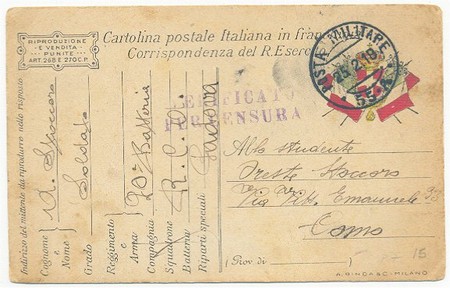 RIPRODUZIONE
E VENDITA
PUNITE
ART. 268 E 270 C.P.
Cartolina postale Italiana in fran
Corrispondenza del R. Eserc
POSTA MILITARE
25.2.18
VERIFICATO
PER CENSURA
Indirizzo del mittente da riprodurre nelle risposte
Cognome e Nome
Grado
Soldato
Reggimento e Arma
Compagnia
Squadrone
Batteria
Riparti speciali
20a Batteria
Allo studente
Oreste
Via Vitt. Emanuele 98
Como
(Prov di
)
15
A. RIVA & C. - MILANO